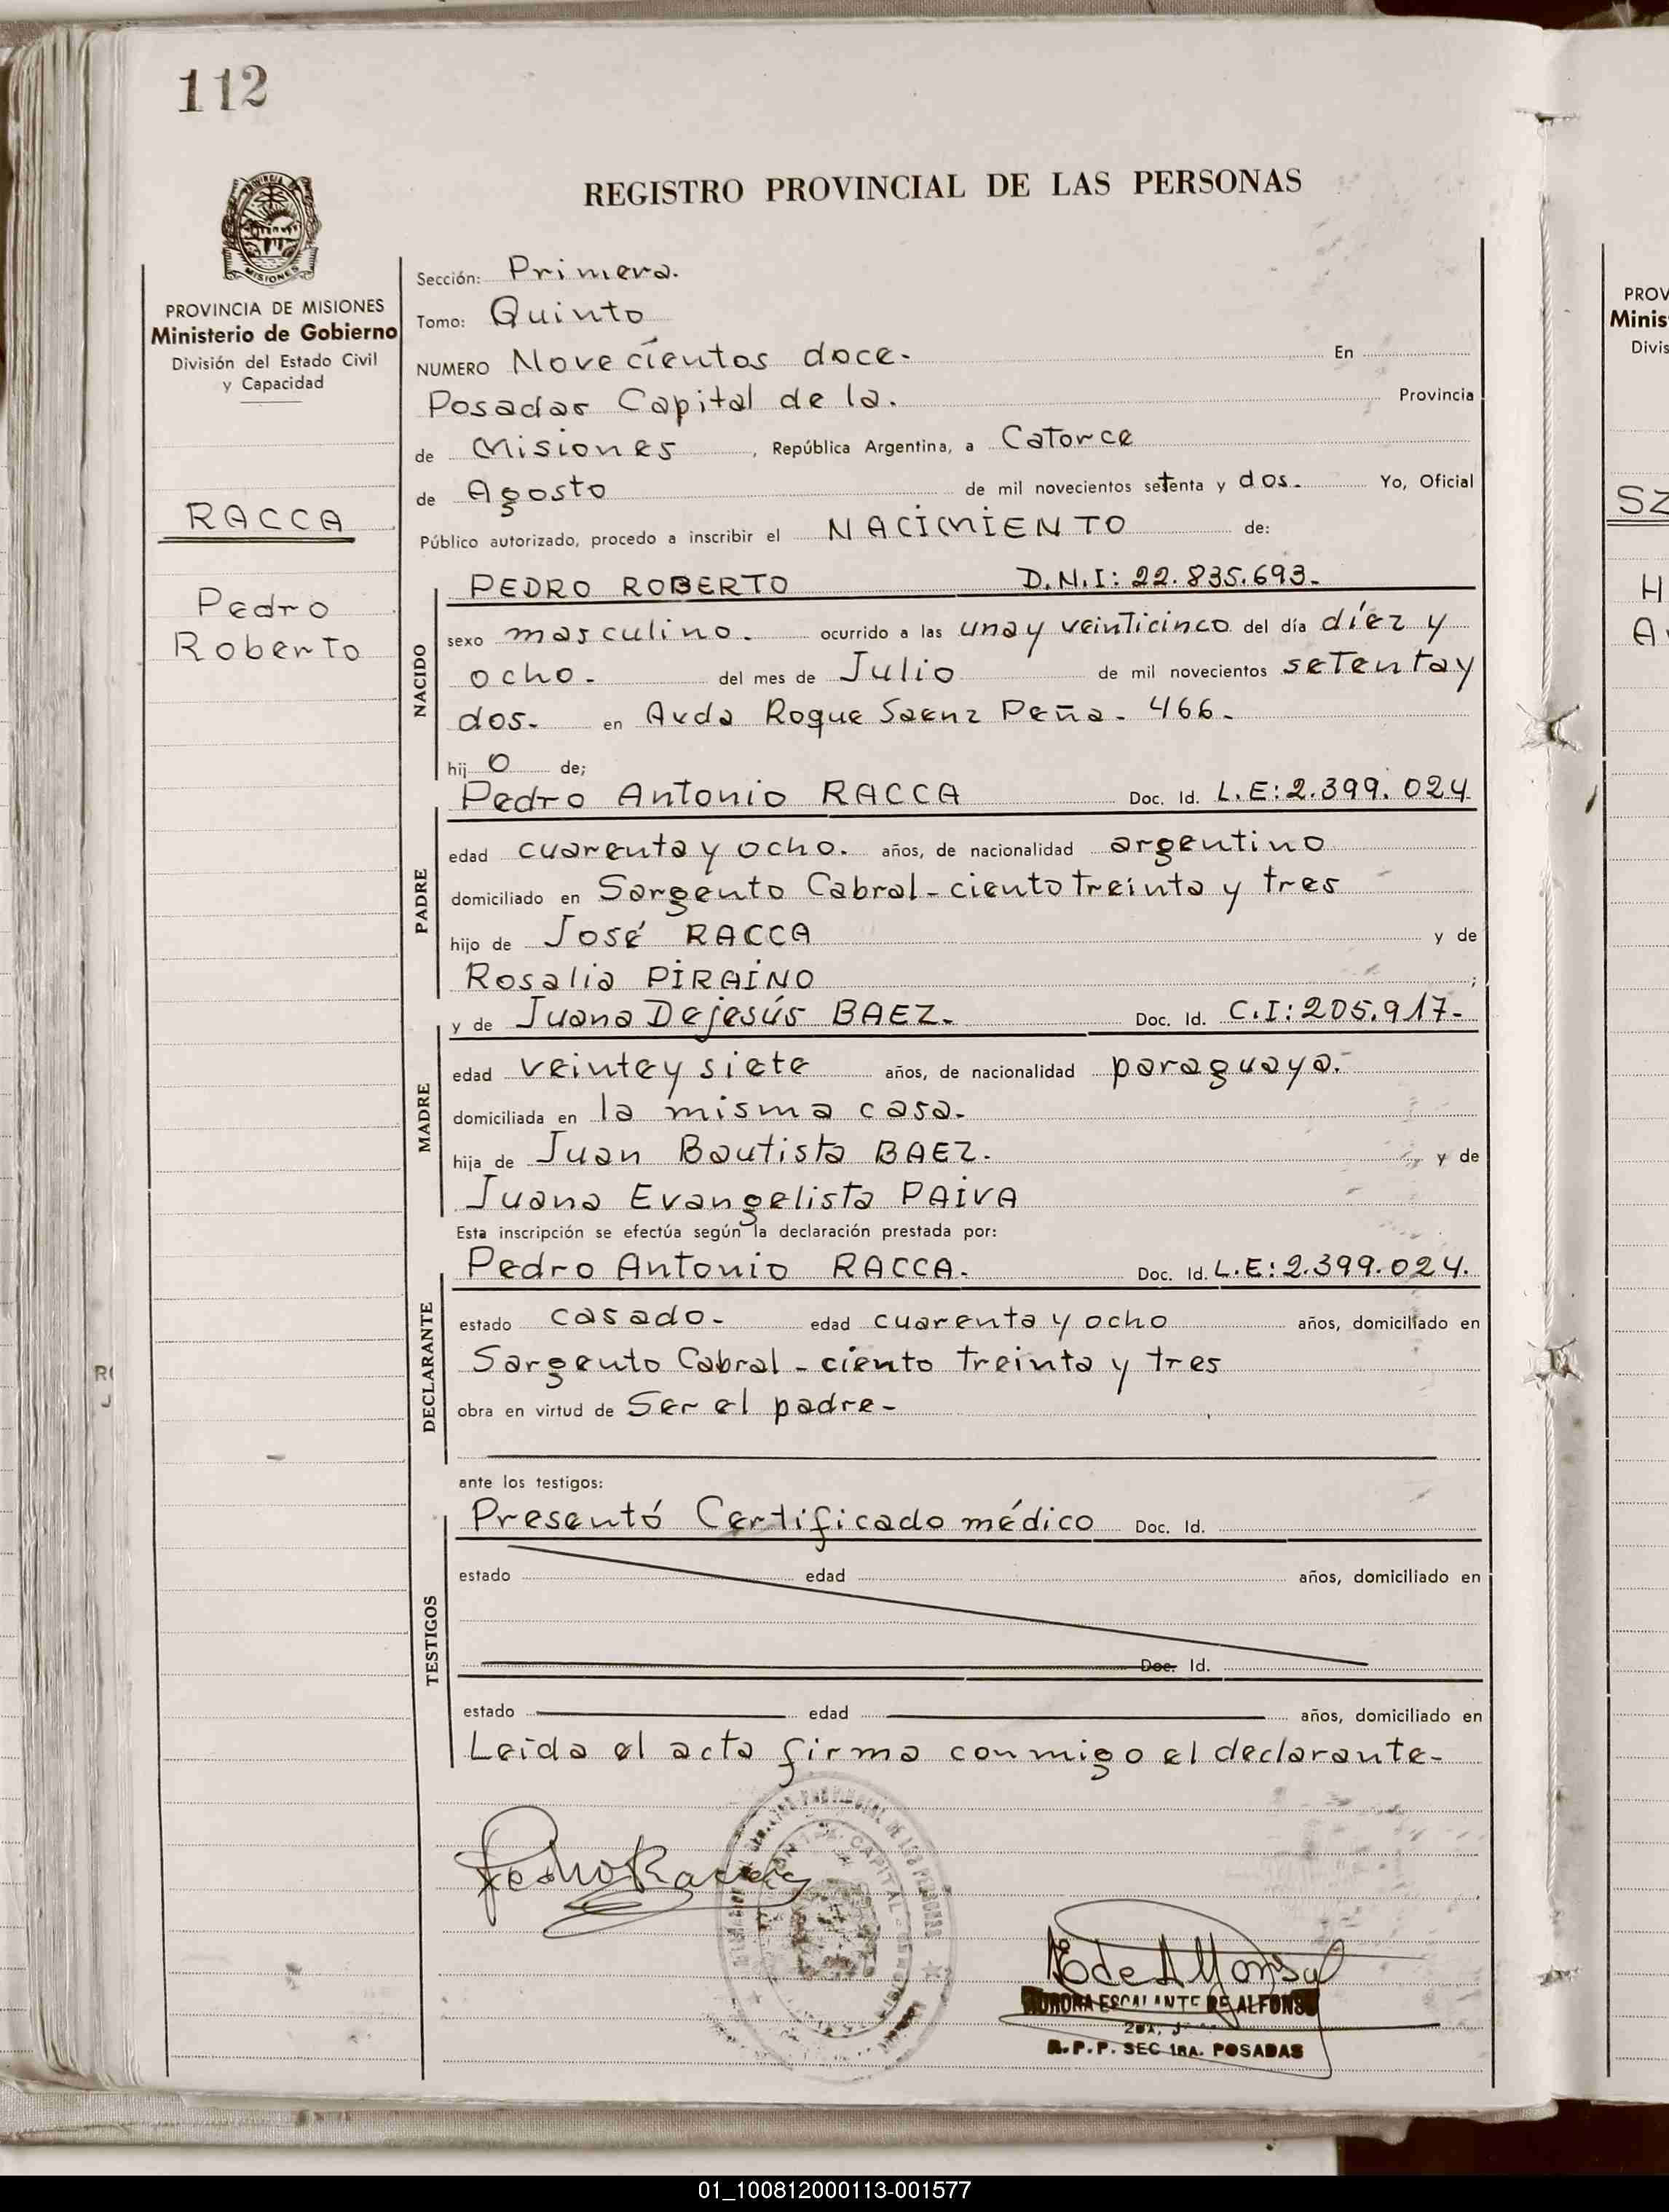 112
REGISTRO PROVINCIAL DE LAS PERSONAS
MISIONES
PROVINCIA DE MISIONES
Ministerio de Gobierno
División del Estado Civil
y Capacidad
RACCA
Pedro
Roberto
Sección: Primera.
Tomo: Quinto
NUMERO Novecientos doce. En
Posadas Capital de la. Provincia
de Misiones, República Argentina, a Catorce
de Agosto de mil novecientos setenta y dos. Yo, Oficial
Público autorizado, procedo a inscribir el NACIMIENTO de:
NACIDO
PEDRO ROBERTO D.N.I: 22.835.693.
sexo masculino. ocurrido a las una y veinticinco del día diez y
ocho. del mes de Julio de mil novecientos setenta y
dos. en Avda Roque Saenz Peña. 466.
hijo de;
PADRE
Pedro Antonio RACCA Doc. Id. L.E:2.399.024
edad cuarenta y ocho. años, de nacionalidad argentino
domiciliado en Sargento Cabral - ciento treinta y tres
hijo de José RACCA y de
Rosalia PIRAINO ;
MADRE
y de Juana Dejesús BAEZ. Doc. Id. C.I:205.917-
edad veinte y siete años, de nacionalidad paraguaya.
domiciliada en la misma casa.
hija de Juan Bautista BAEZ. y de
Juana Evangelista PAIVA
Esta inscripción se efectúa según la declaración prestada por:
DECLARANTE
Pedro Antonio RACCA. Doc. Id. L.E:2.399.024.
estado casado. edad cuarenta y ocho años, domiciliado en
Sargento Cabral - ciento treinta y tres
obra en virtud de Ser el padre-
ante los testigos:
TESTIGOS
Presentó Certificado médico Doc. Id.
estado edad años, domiciliado en
Doc. Id.
estado edad años, domiciliado en
Leída el acta firma conmigo el declarante-
Pedro Racca
ESCALANTE DE ALFONSO
R.P.P. SEC 1RA. POSADAS
PROV
Minis
Divis
SZ
H
01_100812000113-001577